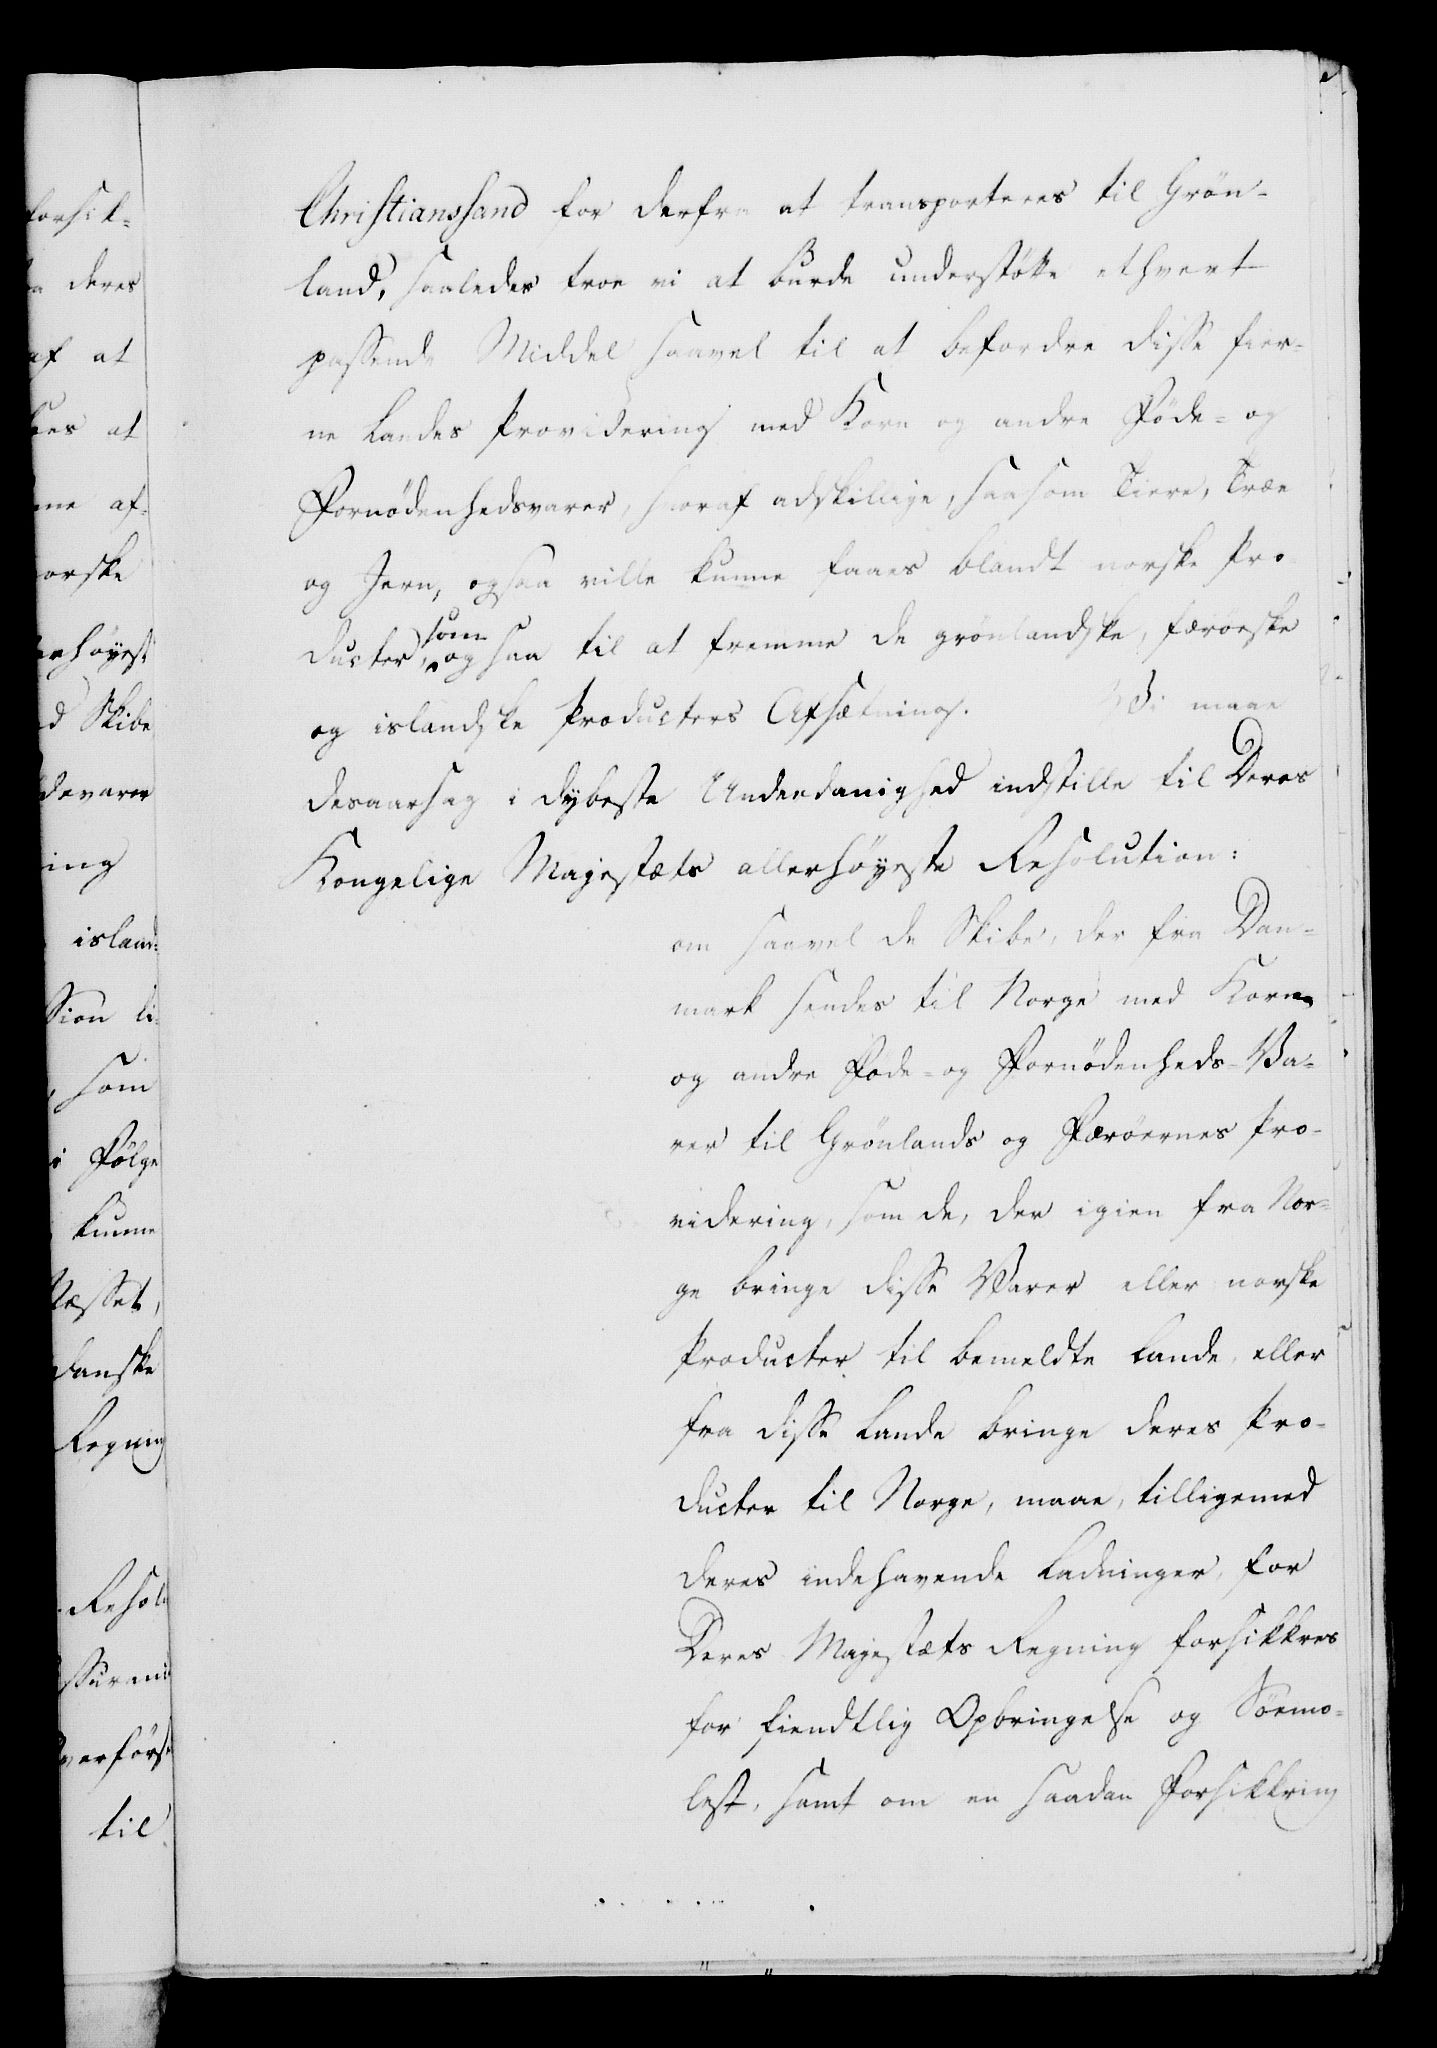 Christianssand for derfra at transporteres til Grøn-
land, saaledes troe vi at burde understøtte ethvert
passende Middel saavel til at befordre disse fier-
ne Landes Providering med Korn og andre Føde- og
Fornødenhedsvarer, hvoraf adskillige, saasom Tiere, Træe
og Jern, ogsaa ville kunne faaes blandt norske Pro-
ducter, som
ogsaa til at fremme de grønlandske, færøeske
og islandske Producters Afsætning. Vi maae
desaarsag i dybeste Underdanighed indstille til Deres
Kongelige Majestæts allerhøyeste Resolution:
om saavel de Skibe, der fra Dan-
mark sendes til Norge med Korn
og andre Føde- og Fornødenheds-Va-
rer til Grønlands og Færøernes Pro-
videring, som de, der igien fra Nor-
ge bringe disse Varer eller norske
Producter til bemeldte Lande, eller
fra disse Lande bringe deres Pro-
ducter til Norge, maae, tilligemed
deres indehavende Ladninger, for
Deres Majestæts Regning forsikkres
for fiendtlig Opbringelse og Søemo-
lest, samt om en saadan Forsikkring